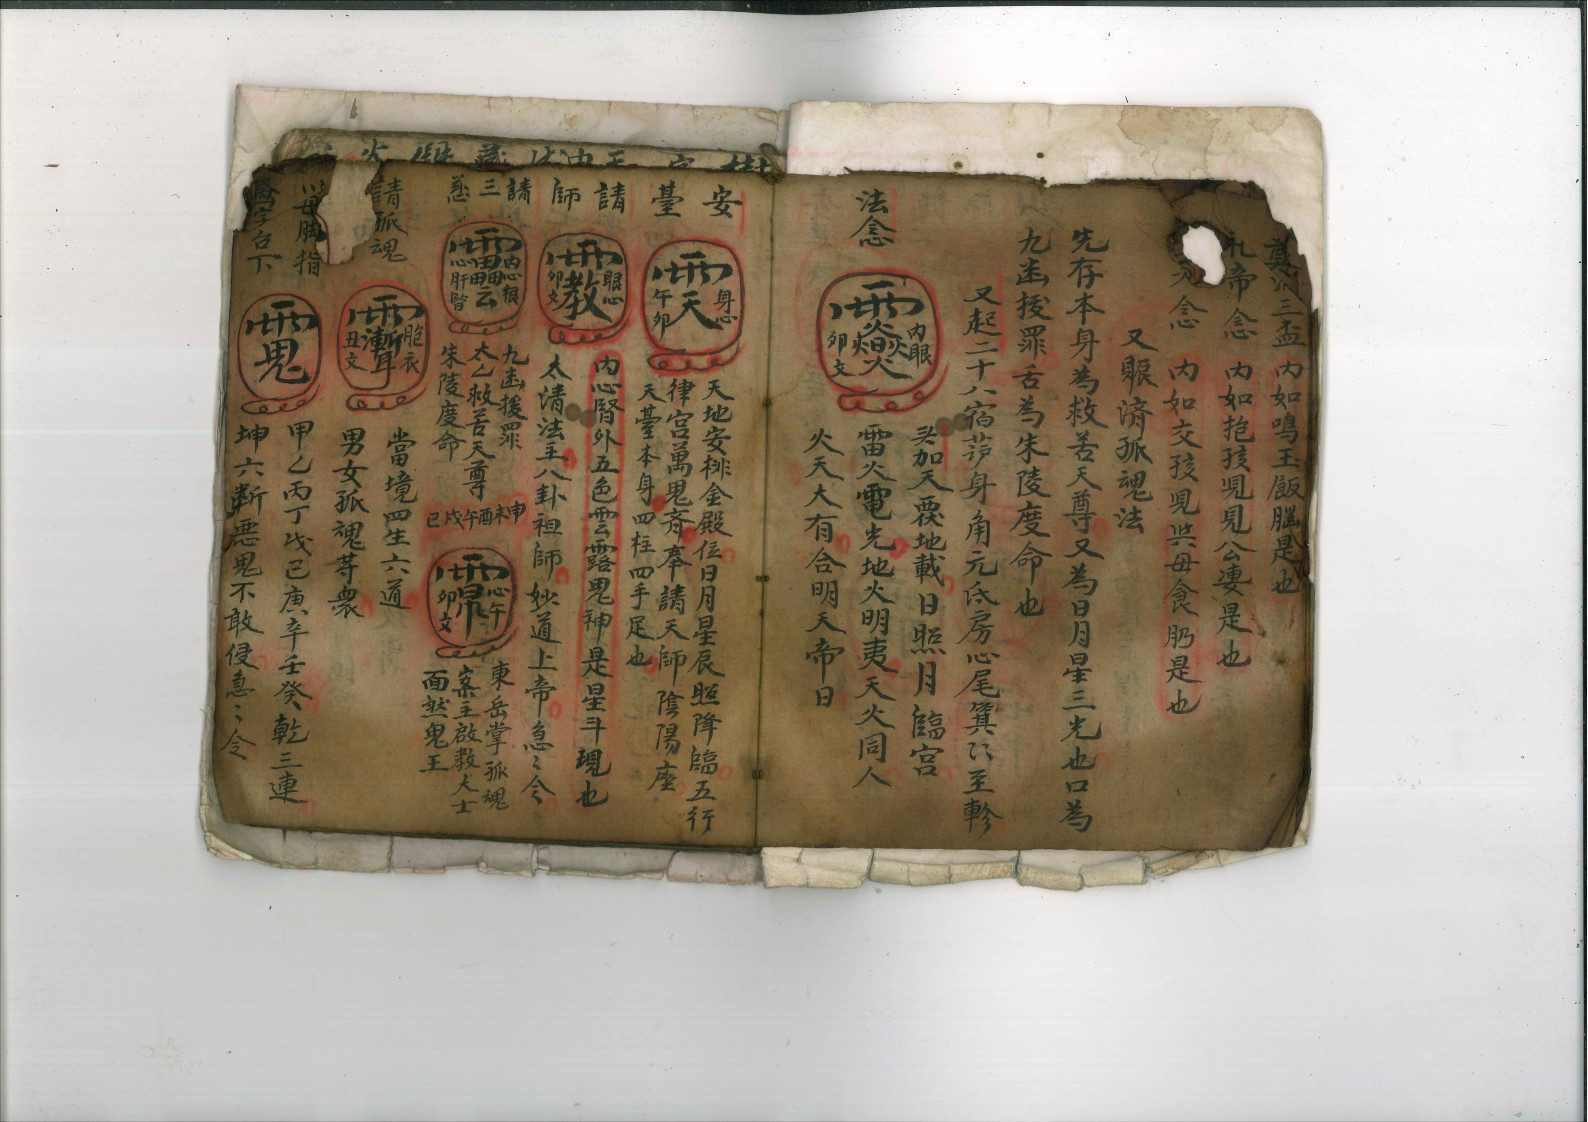 三盃 内如鳴玉飯腽是也
礼帝念 内如抱孩児見公婆是也
念 内如交孩児共母食肭是也
又賑済孤魂法
先存本身為救苦天尊又為日月星三光也口為
九幽援罪舌為朱陵度命也
又起二十八宿莎身角元氐房心尾箕以至軫
头加天覆地載日照月臨宮
法念
內眼
卯文
雷火電光地火明夷天火同人
火天大有合明天帝日
安臺
身心
天
午卯
天地安排金殿位日月星辰照降臨五行
律宮萬鬼齊奉請天師陰陽座
天臺本身四柱四手足也
內心腎外五色雲露鬼神是星斗現也
請師
眼心
教
卯文
太清法主八卦祖師妙道上帝急〻令
請三慈
內心根
心肝腎
九幽援罪
太乙救苦天尊
朱陵度命
申未酉午戌巳
心午
卯文
東岳掌孤魂
案主啟教大士
面然鬼王
請孤魂
胞衣
丑文
當境四生六道
男女孤魂等眾
母脚指
字台下
鬼
甲乙丙丁戊己庚辛壬癸乾三連
坤六断惡鬼不敢侵急〻令